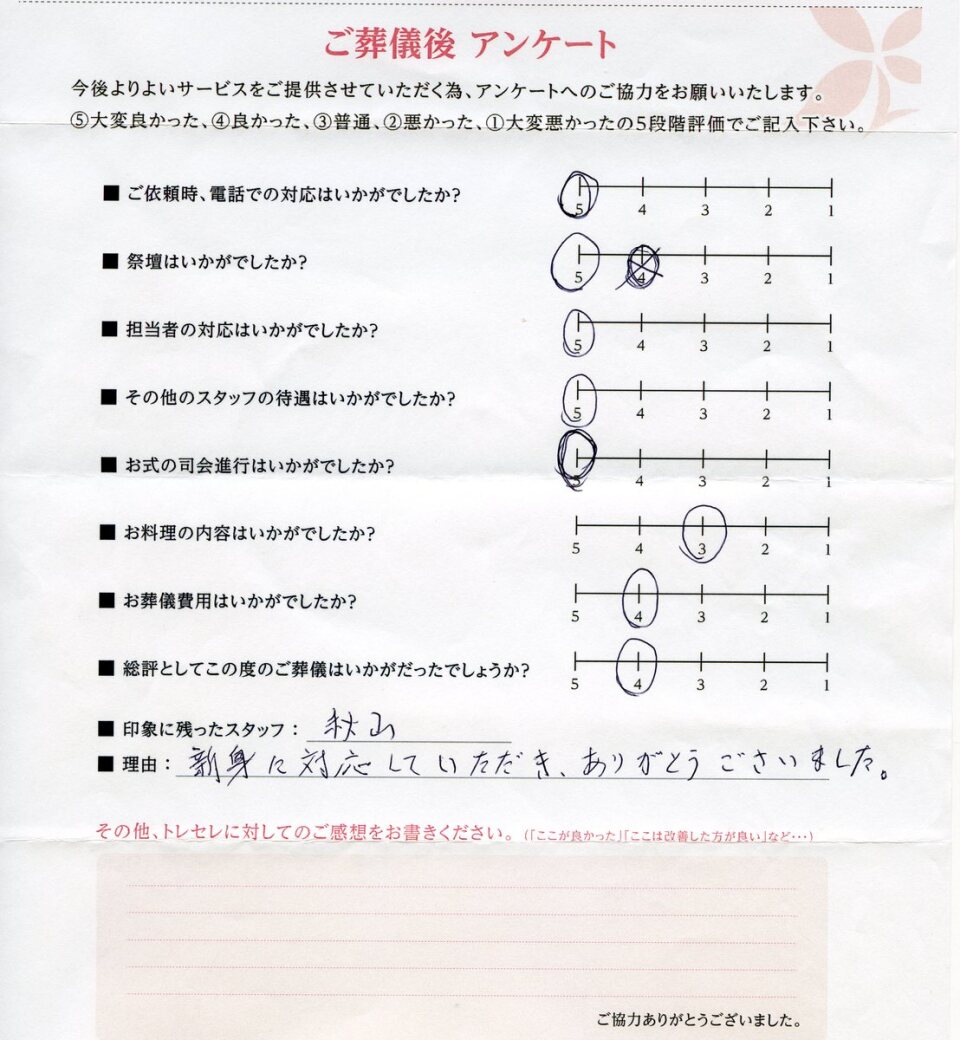 ご葬儀後 アンケート
今後よりよいサービスをご提供させていただく為、アンケートへのご協力をお願いいたします。
⑤大変良かった、④良かった、③普通、②悪かった、①大変悪かったの5段階評価でご記入下さい。
■ ご依頼時、電話での対応はいかがでしたか? 5 4 3 2 1
■ 祭壇はいかがでしたか? 5 4 3 2 1
■ 担当者の対応はいかがでしたか? 5 4 3 2 1
■ その他のスタッフの待遇はいかがでしたか? 5 4 3 2 1
■ お式の司会進行はいかがでしたか? 5 4 3 2 1
■ お料理の内容はいかがでしたか? 5 4 3 2 1
■ お葬儀費用はいかがでしたか? 5 4 3 2 1
■ 総評としてこの度のご葬儀はいかがだったでしょうか? 5 4 3 2 1
■ 印象に残ったスタッフ : 秋山
■ 理由 : 新身に対応していただき、ありがとうございました。
その他、トレセレに対してのご感想をお書きください。(「ここが良かった」「ここは改善した方が良い」など・・・)
ご協力ありがとうございました。